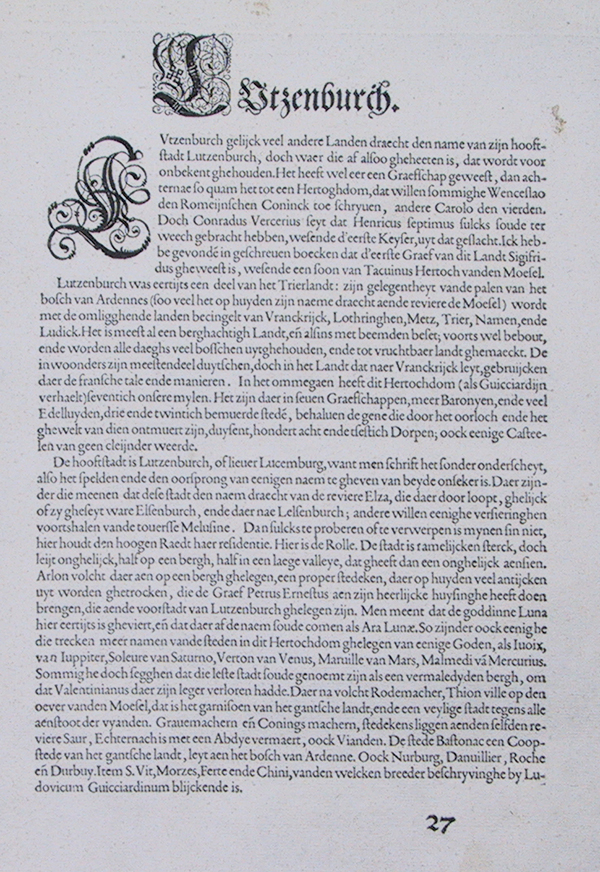 LVtzenburch.
LVtzenburch gelijck veel andere Landen draecht den name van zijn hooft-
stadt Lutzenburch, doch waer die af alsoo gheheeten is, dat wordt voor
onbekent ghehouden. Het heeft wel eer een Graefschap geweest, dan ach-
ternae so quam het tot een Hertoghdom, dat willen sommighe Wenceslao
den Romeijnschen Coninck toe schryuen, andere Carolo den vierden.
Doch Conradus Vercerius seyt dat Henricus septimus sulcks soude ter
weech gebracht hebben, wesende d'eerste Keyser, uyt dat geslacht. Ick heb-
be gevondē in geschreuen boecken dat d'eerste Graef van dit Landt Sigifri-
dus gheweest is, wesende een soon van Tacuinus Hertoch vanden Moesel.
Lutzenburch was eertijts een deel van het Trierlandt: zijn gelegentheyt vande palen van het
bosch van Ardennes (soo veel het op huyden zijn naeme draecht aende reviere de Moesel) wordt
met de omligghende landen becingelt van Vranckrijck, Lothringhen, Metz, Trier, Namen, ende
Ludick. Het is meest al een berghachtigh Landt, eñ alsins met beemden beset; voorts wel bebout,
ende worden alle daeghs veel bosschen uytghehouden, ende tot vruchtbaer landt ghemaeckt. De
inwoonders zijn meestendeel duytschen, doch in het Landt dat naer Vranckrijck leyt, gebruijcken
daer de fransche tale ende manieren. In het ommegaen heeft dit Hertochdom (als Guicciardijn
verhaelt) seventich onsere mylen. Het zijn daer in seuen Graefschappen, meer Baronyen, ende veel
Edelluyden, drie ende twintich bemuerde stedē, behaluen de gene die door het oorloch ende het
ghewelt van dien ontmuert zijn, duysent, hondert acht ende tsestich Dorpen; oock eenige Castee-
len van geen cleijnder weerde.
De hooftstadt is Lutzenburch, of lieuer Lucemburg, want men schrift het sonder onderscheyt,
also het spelden ende den oorsprong van eenigen naem te gheven van beyde onseker is. Daer zijn-
der die meenen dat dese stadt den naem draecht van de reviere Elza, die daer door loopt, ghelijck
of zy gheseyt ware Elsenburch, ende daer nae Lelsenburch; andere willen eenighe versieringhen
voortshalen vande touersse Melusine. Dan sulcks te proberen of te verwerpen is mynen sin niet,
hier houdt den hoogen Raedt haer residentie. Hier is de Rolle. De stadt is ramelijcken sterck, doch
leijt onghelijck, half op een bergh, half in een laege valleye, dat gheeft dan een onghelijck aensien.
Arlon volcht daer aen op een bergh ghelegen, een proper stedeken, daer op huyden veel antijcken
uyt worden ghetrocken, die de Graef Petrus Ernestus aen zijn heerlijcke huysinghe heeft doen
brengen, die aende voorstadt van Lutzenburch ghelegen zijn. Men meent dat de goddinne Luna
hier eertijts is gheviert, eñ dat daer af de naem soude comen als Ara Lunæ. So zijnder oock eenighe
die trecken meer namen vande steden in dit Hertochdom ghelegen van eenige Goden, als Iuoix,
van Iuppiter, Soleure van Saturno, Verton van Venus, Maruille van Mars, Malmedi vā Mercurius.
Sommighe doch segghen dat die leste stadt soude genoemt zijn als een vermaledyden bergh, om
dat Valentinianus daer zijn leger verloren hadde. Daer na volcht Rodemacher, Thion ville op den
oever vanden Moesel, dat is het garnisoen van het gantsche lande, ende een veylige stadt tegens alle
aenstoot der vyanden. Grauemachern eñ Conings machern, stedekens liggen aenden selfden re-
viere Saur, Echternach is met een Abdye vermaert, oock Vianden. De stede Bastonac een Coop-
stede van het gantsche landt, leyt aen het bosch van Ardenne. Oock Nurburg, Danuillier, Roche
eñ Durbuy. Item S. Vit, Morzes, Ferte ende Chini, vanden welcken breeder beschryvinghe by Lu-
dovicum Guicciardinum blijckende is.
27